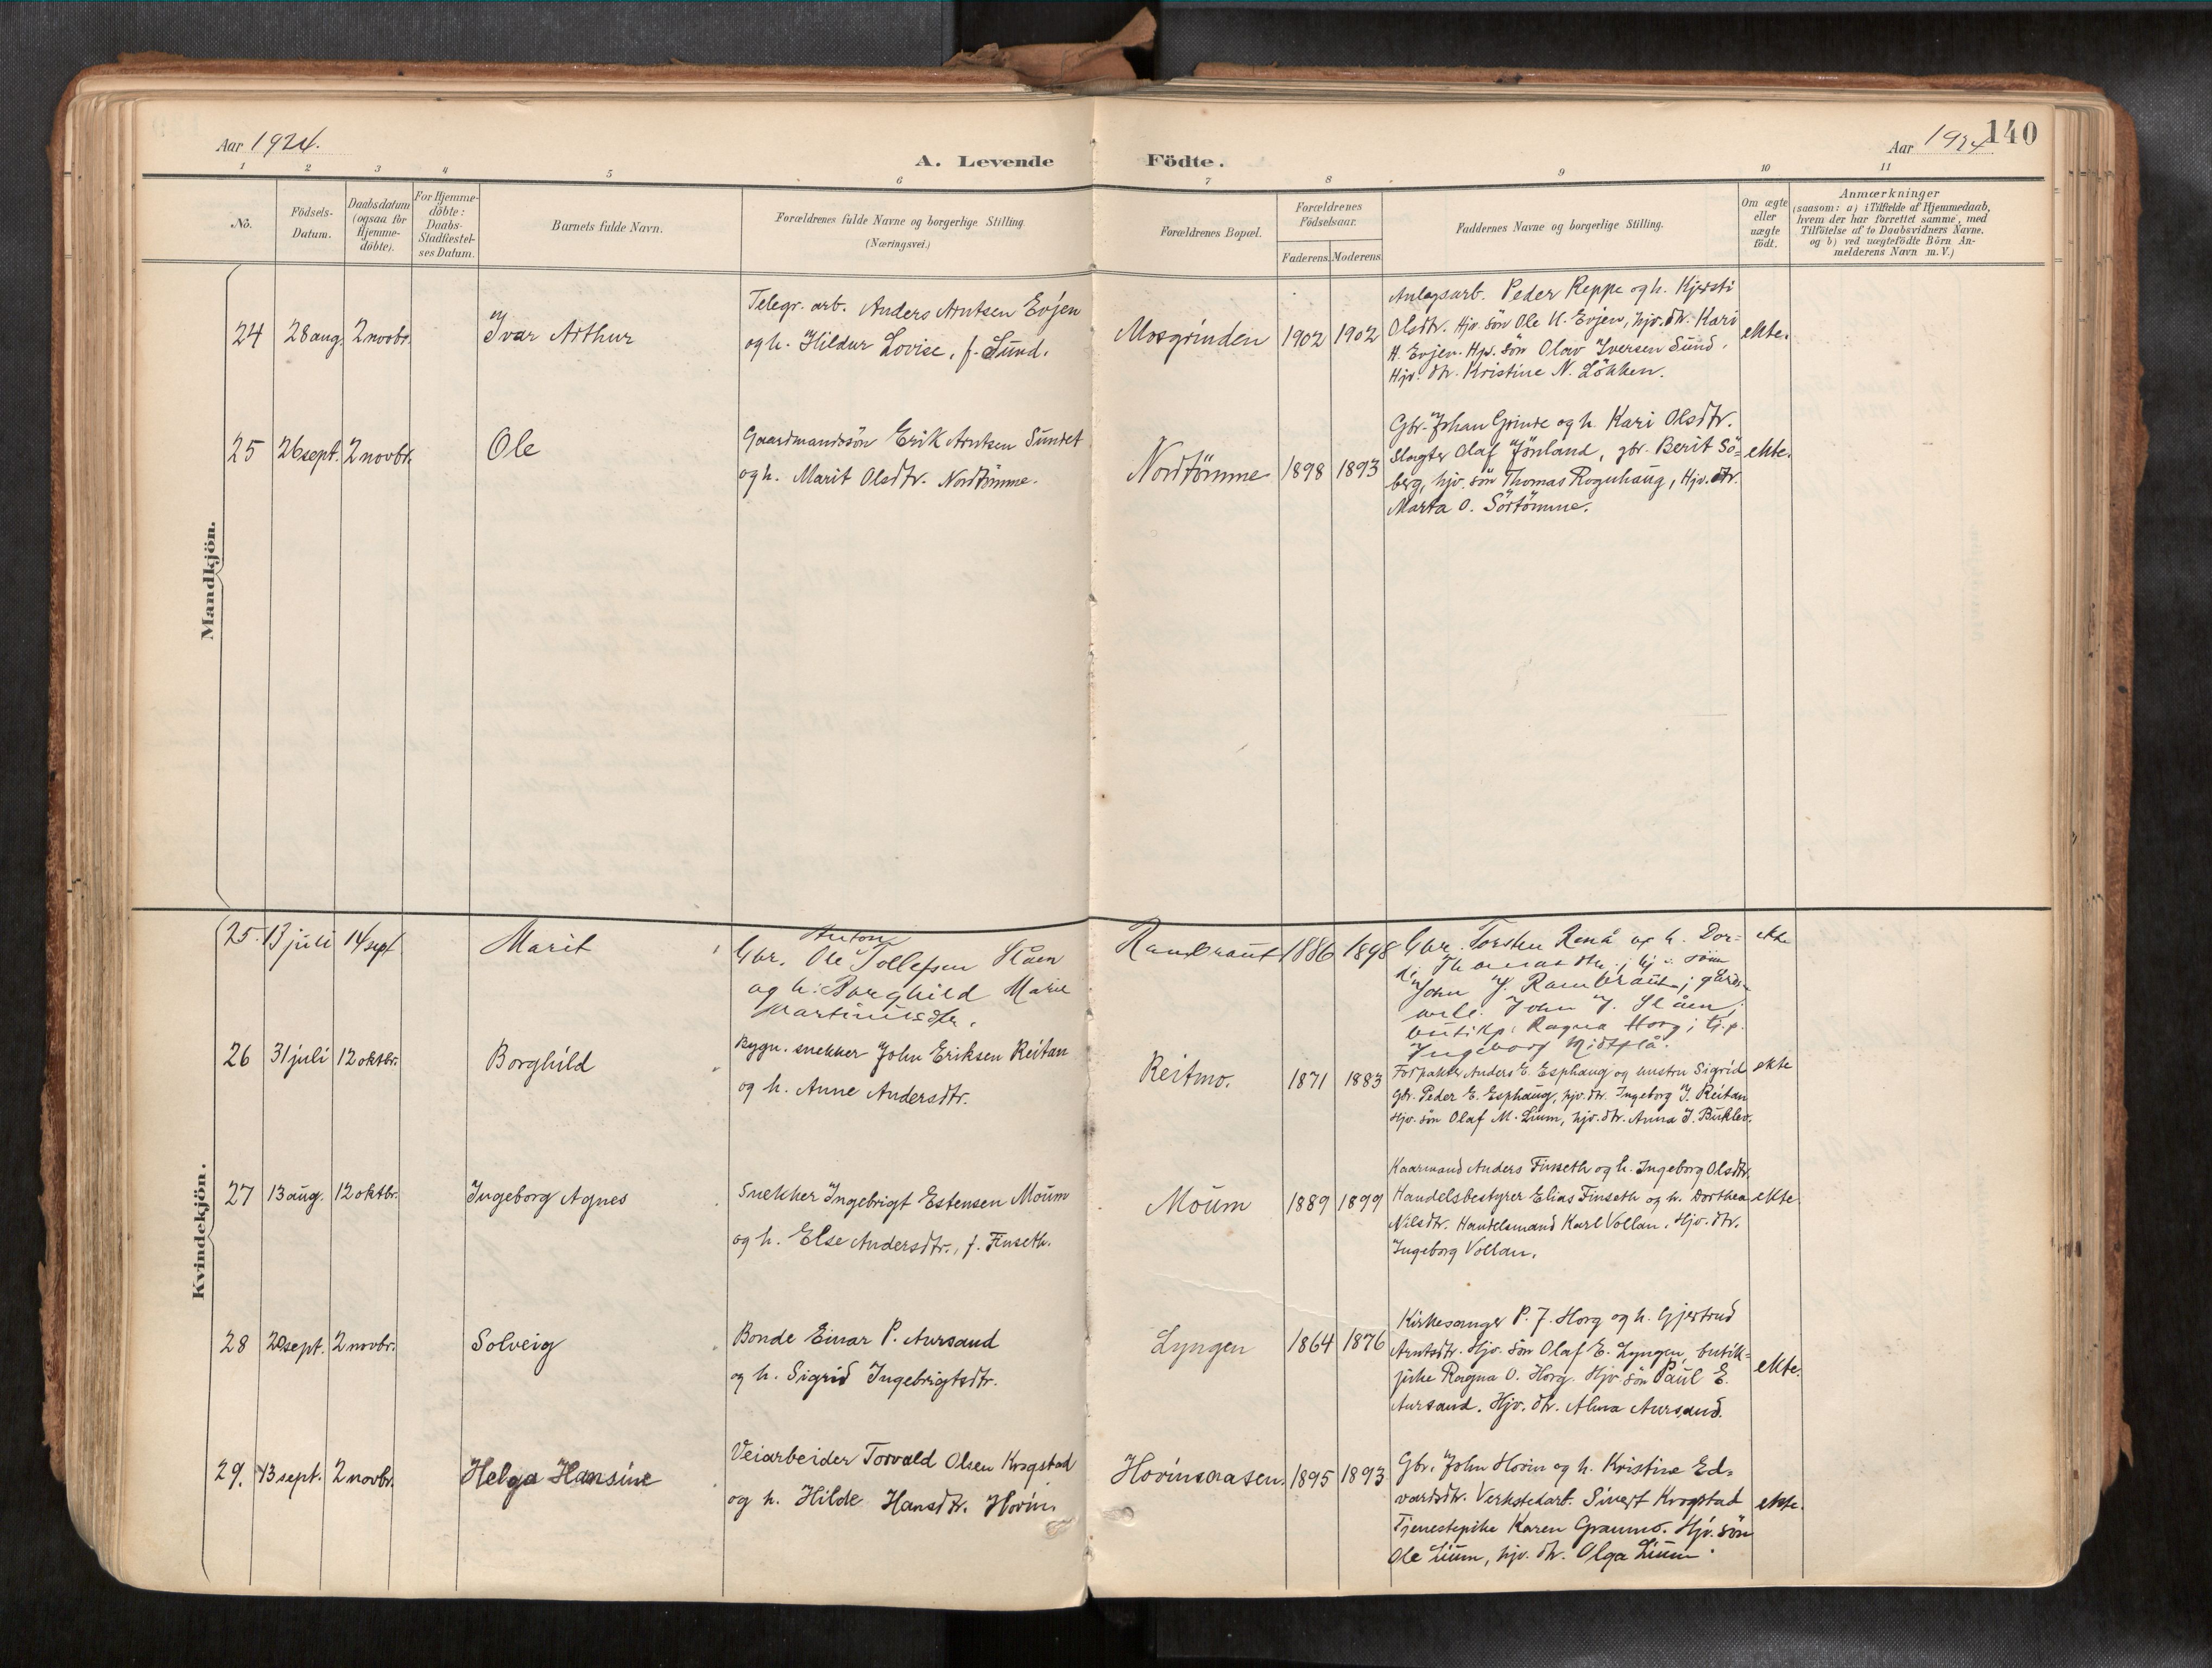 Aar 1924.
A. Levende Födte.
Aar 1924
140
1 2 3 4 5 6 7 8 9 10 11
No.
Födsels-
Datum.
Daabsdatum
(ogsaa for
Hjemme-
döbte).
For Hjemme-
döbte:
Daabs-
Stadfæstel-
ses Datum.
Barnets fulde Navn.
Forældrenes fulde Navne og borgerlige Stilling
(Næringsvei.)
Forældrenes Bopæl.
Forældrenes
Födselsaar.
Faderens. Moderens.
Faddernes Navne og borgerlige Stilling.
Om ægte
eller
uægte
födt.
Anmærkninger
(saasom: a) i Tilfælde af Hjemmedaab,
hvem der har forrettet samme, med
Tilföielse af to Daabsvidners Navne.
og b) ved uægtefödte Börn An-
melderens Navn m. V.)
Mandkjön.
24 28 aug. 2 novbr. Ivar Arthur
Telegr. arb. Anders Arntsen Evjen
og h. Hildur Lovise, f. Sund.
Mosgrinden 1902 1902
Anlagsarb. Peder Reppe og h. Kjersti
Olsdtr. Hjv. sön Ole H. Evjen, hjv. dtr. Kari
H. Evjen. Hjv. sön Olav Iversen Sund,
Hjv. dtr. Kristine N. Lökken.
ekte.
25 26 sept. 2 novbr. Ole
Gaardmandssön Erik Arntsen Sundet
og h. Marit Olsdtr. Nordtömme.
Nordtömme 1898 1893
Gbr. Johan Grinde og h. Kari Olsdtr.
Slagter Olaf Jönland, gbr. Berit Sö=
berg, hjv. sön Thomas Rognhaug, Hjv. dtr.
Marta O. Sörtömme.
ekte.
Kvindekjön.
25. 13 juli 14 sept Marit
Anton
Gbr. Ole Tollefsen Slåen
og h. Borghild Marie
Martinusdtr.
Rambraut 1886 1898
Gbr. Torsten Renå og h. Dor=
John J. Rambraut; gbrs.
John J. Slåen;
butikp. Ragna Horg; tj.p.
Ingeborg Midtflå.
ekte
26 31 juli 12 oktbr. Borghild
Bygn. snekker John Eriksen Reitan
og h. Anne Andersdtr.
Reitmo. 1871 1883
Forpakter Anders E. Esphaug og hustru Sigrid
Gbr. Peder E. Esphaug, hjv. dtr. Ingeborg J. Reitan
Hjv. sön Olaf M. Lium, hjv. dtr. Anna J. Buklev.
ekte
27 13 aug. 12 oktbr. Ingeborg Agnes
Snekker Ingebrigt Estensen Moum
og h. Else Andersdtr., f. Finseth.
Moum 1889 1899
Kaarmand Anders Finseth og h. Ingeborg Olsdtr.
Handelsbestyrer Elias Finseth og h. Dorthea
Nilsdtr. Handelsmand Karl Vollan. Hjv. dtr.
Ingeborg Vollan.
ekte.
28 20 sept. 2 novbr. Solveig
Bonde Einar P. Aursand
og h. Sigrid Ingebrigtsdtr.
Lyngen 1864 1876
Kirkesanger P. J. Horg og h. Gjertrud
Arntsdtr. Hjv. sön Olaf E. Lyngen, butik=
pike Ragna O. Horg. Hjv. sön Paul E.
Aursand. Hjv. dtr. Alma Aursand.
ekte.
29. 13 sept. 2 novbr. Helga Hansine
Veiarbeider Torvald Olsen Krogstad
og h. Hilde Hansdtr. Hovin.
Hovinsaasen. 1895 1893
Gbr. John Hovin og h. Kristine Ed=
vardsdtr. Verkstedarb. Sivert Krogstad
Tjenestepike Karen Granmo. Hjv. sön
Ole Lium, hjv. dtr. Olga Lium.
ekte.